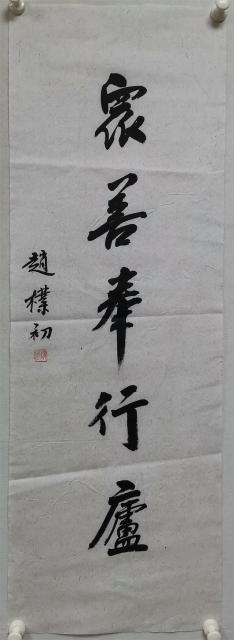 眾善奉行廬
趙樸初